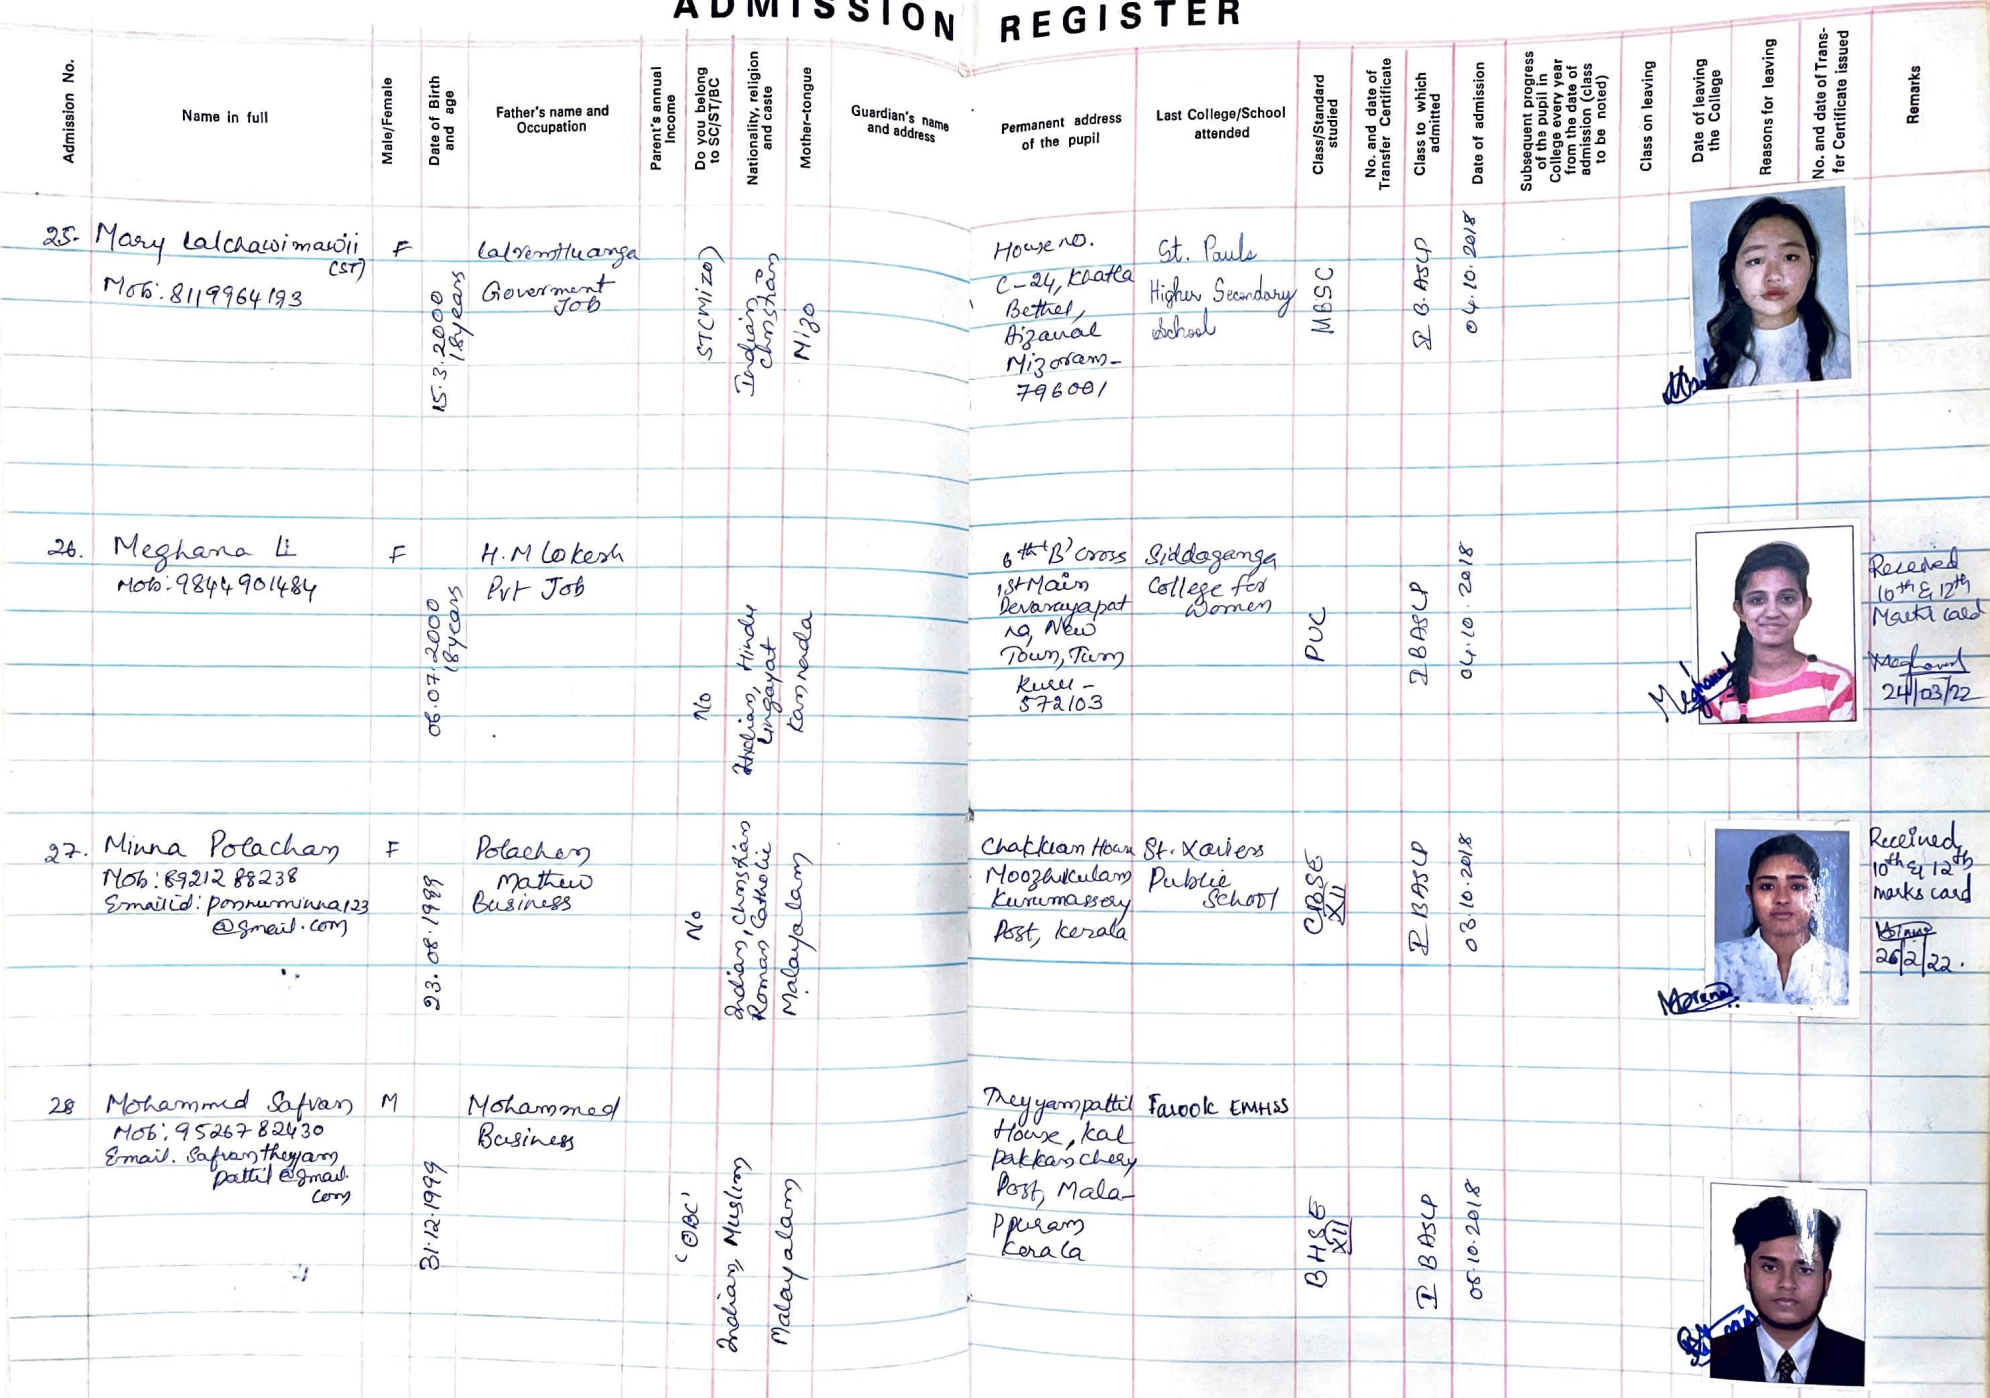 ADMISSION REGISTER
Admission No.
Name in full
Male/Female
Date of Birth
and age
Father's name and
Occupation
Parent's annual
Income
Do you belong
to SC/ST/BC
Nationality, religion
and caste
Mother-tongue
Guardian's name
and address
Permanent address
of the pupil
Last College/School
attended
Class/Standard
studied
No. and date of
Transfer Certificate
Class to which
admitted
Date of admission
Subsequent progress
of the pupil in
College every year
from the date of
admission (class
to be noted)
Class on leaving
Date of leaving
the College
Reasons for leaving
No. and date of Trans-
fer Certificate issued
Remarks
25.
Mary Lalchawimawii
(ST)
Mob: 8119964193
F
15.3.2000
18years
Lalremthuanga
Goverment
Job
ST(Mizo)
Indian,
Christian
Mizo
House no.
C-24, Khatla
Bethel,
Aizawal
Mizoram-
796001
St. Pauls
Higher Secondary
School
MBSC
I B.ASLP
04.10.2018
26.
Meghana L
Mob: 9844901484
F
06.07.2000
18years
H.M Lokesh
Pvt Job
No
Indian, Hindu
Lingayat
Kannada
6th 'B' cross
1st Main
Devarayapat
na, New
Town, Tum
kuru-
572103
Siddaganga
College for
Women
PUC
I BASLP
04.10.2018
Meghana
Received
10th & 12th
Marks card
24/03/22
27.
Minna Polachan
Mob: 8921288238
Emailid: ponnuminna123
@gmail.com
F
23.08.1999
Polachen
Mathew
Business
No
Indian, Christian
Roman Catholic
Malayalam
Chakkian House
Moozhikulam
Kurumassery
Post, Kerala
St. Xaviers
Public
School
CBSE
XII
I BASLP
03.10.2018
Received
10th & 12th
marks card
26/2/22.
28
Mohammed Safvan
Mob: 9526782430
Email. Safvantheyyam
pattil@gmail.
com
M
31.12.1999
Mohammed
Business
'OBC'
Indian, Muslim
Malayalam
Theyyampattil
House, Kal
pakkanchery
Post, Mala-
ppuram
Kerala
Farook EMHSS
BHSE
XII
I BASLP
05.10.2018